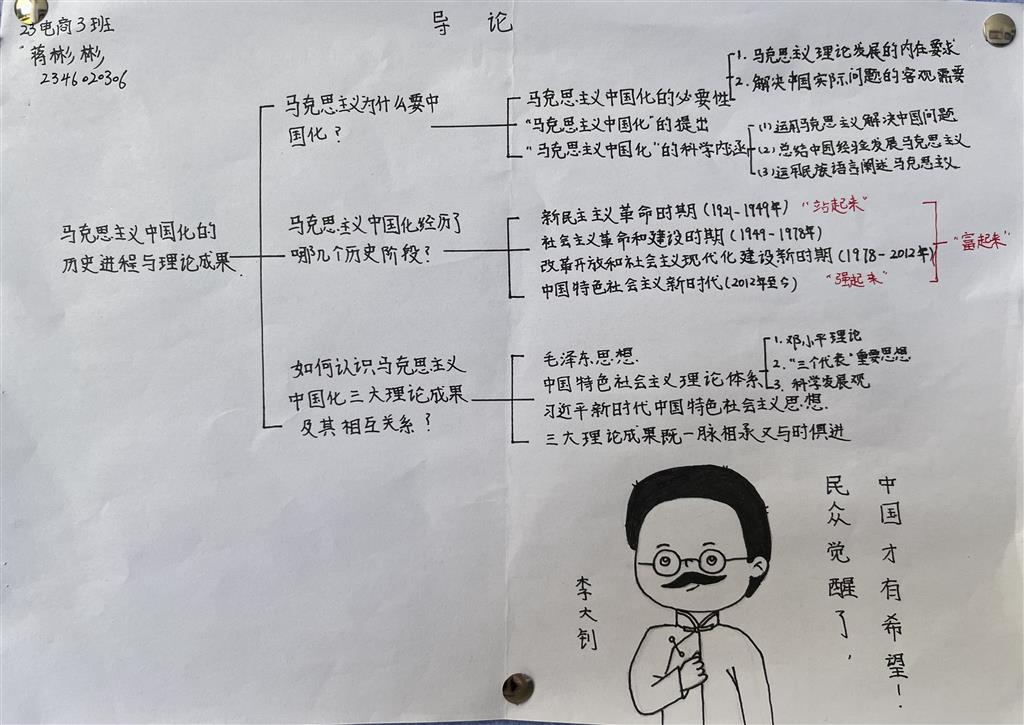 导 论
23电商3班
蒋彬彬
2346020306
马克思主义中国化的
历史进程与理论成果.
马克思主义为什么要中
国化？
马克思主义中国化的必要性
1. 马克思主义理论发展的内在要求
2. 解决中国实际问题的客观需要
“马克思主义中国化”的提出
“马克思主义中国化”的科学内涵
(1) 运用马克思主义解决中国问题
(2) 总结中国经验发展马克思主义
(3) 运用民族语言阐述马克思主义
马克思主义中国化经历了
哪几个历史阶段？
新民主主义革命时期(1921-1949年) “站起来”
社会主义革命和建设时期(1949-1978年)
改革开放和社会主义现代化建设新时期(1978-2012年)
中国特色社会主义新时代(2012年至今) “强起来”
“富起来”
如何认识马克思主义
中国化三大理论成果
及其相互关系？
毛泽东思想.
中国特色社会主义理论体系
1. 邓小平理论
2. “三个代表”重要思想
3. 科学发展观
习近平新时代中国特色社会主义思想.
三大理论成果既一脉相承又与时俱进
李大钊
民众觉醒了，
中国才有希望！